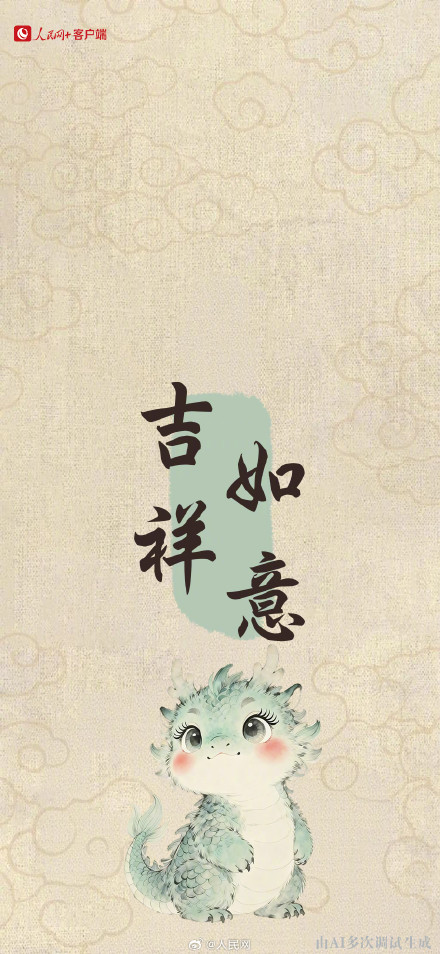 人民网+客户端
吉祥
如意
@人民网
由AI多次调试生成